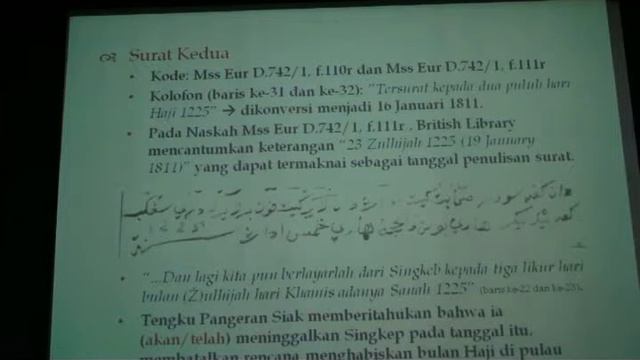 Surat Kedua
• Kode: Mss Eur D.742/1, f.110r dan Mss Eur D.742/1, f.111r
• Kolofon (baris ke-31 dan ke-32): "Tersurat kepada dua puluh hari
Haji 1225" → dikonversi menjadi 16 Januari 1811.
• Pada Naskah Mss Eur D.742/1, f.111r , British Library
mencantumkan keterangan "23 Zulhijah 1225 (19 January
1811)" yang dapat termaknai sebagai tanggal penulisan surat.
• "...Dan lagi kita pun berlayarlah dari Singkeb kepada tiga likur hari
bulan (Ż)ulhijah hari Khamis adanya Sanah 1225" (baris ke-22 dan ke-23).
• Tengku Pangeran Siak memberitahukan bahwa ia
(akan/telah) meninggalkan Singkep pada tanggal itu,
membatalkan rencana menghabiskan bulan Haji di pulau